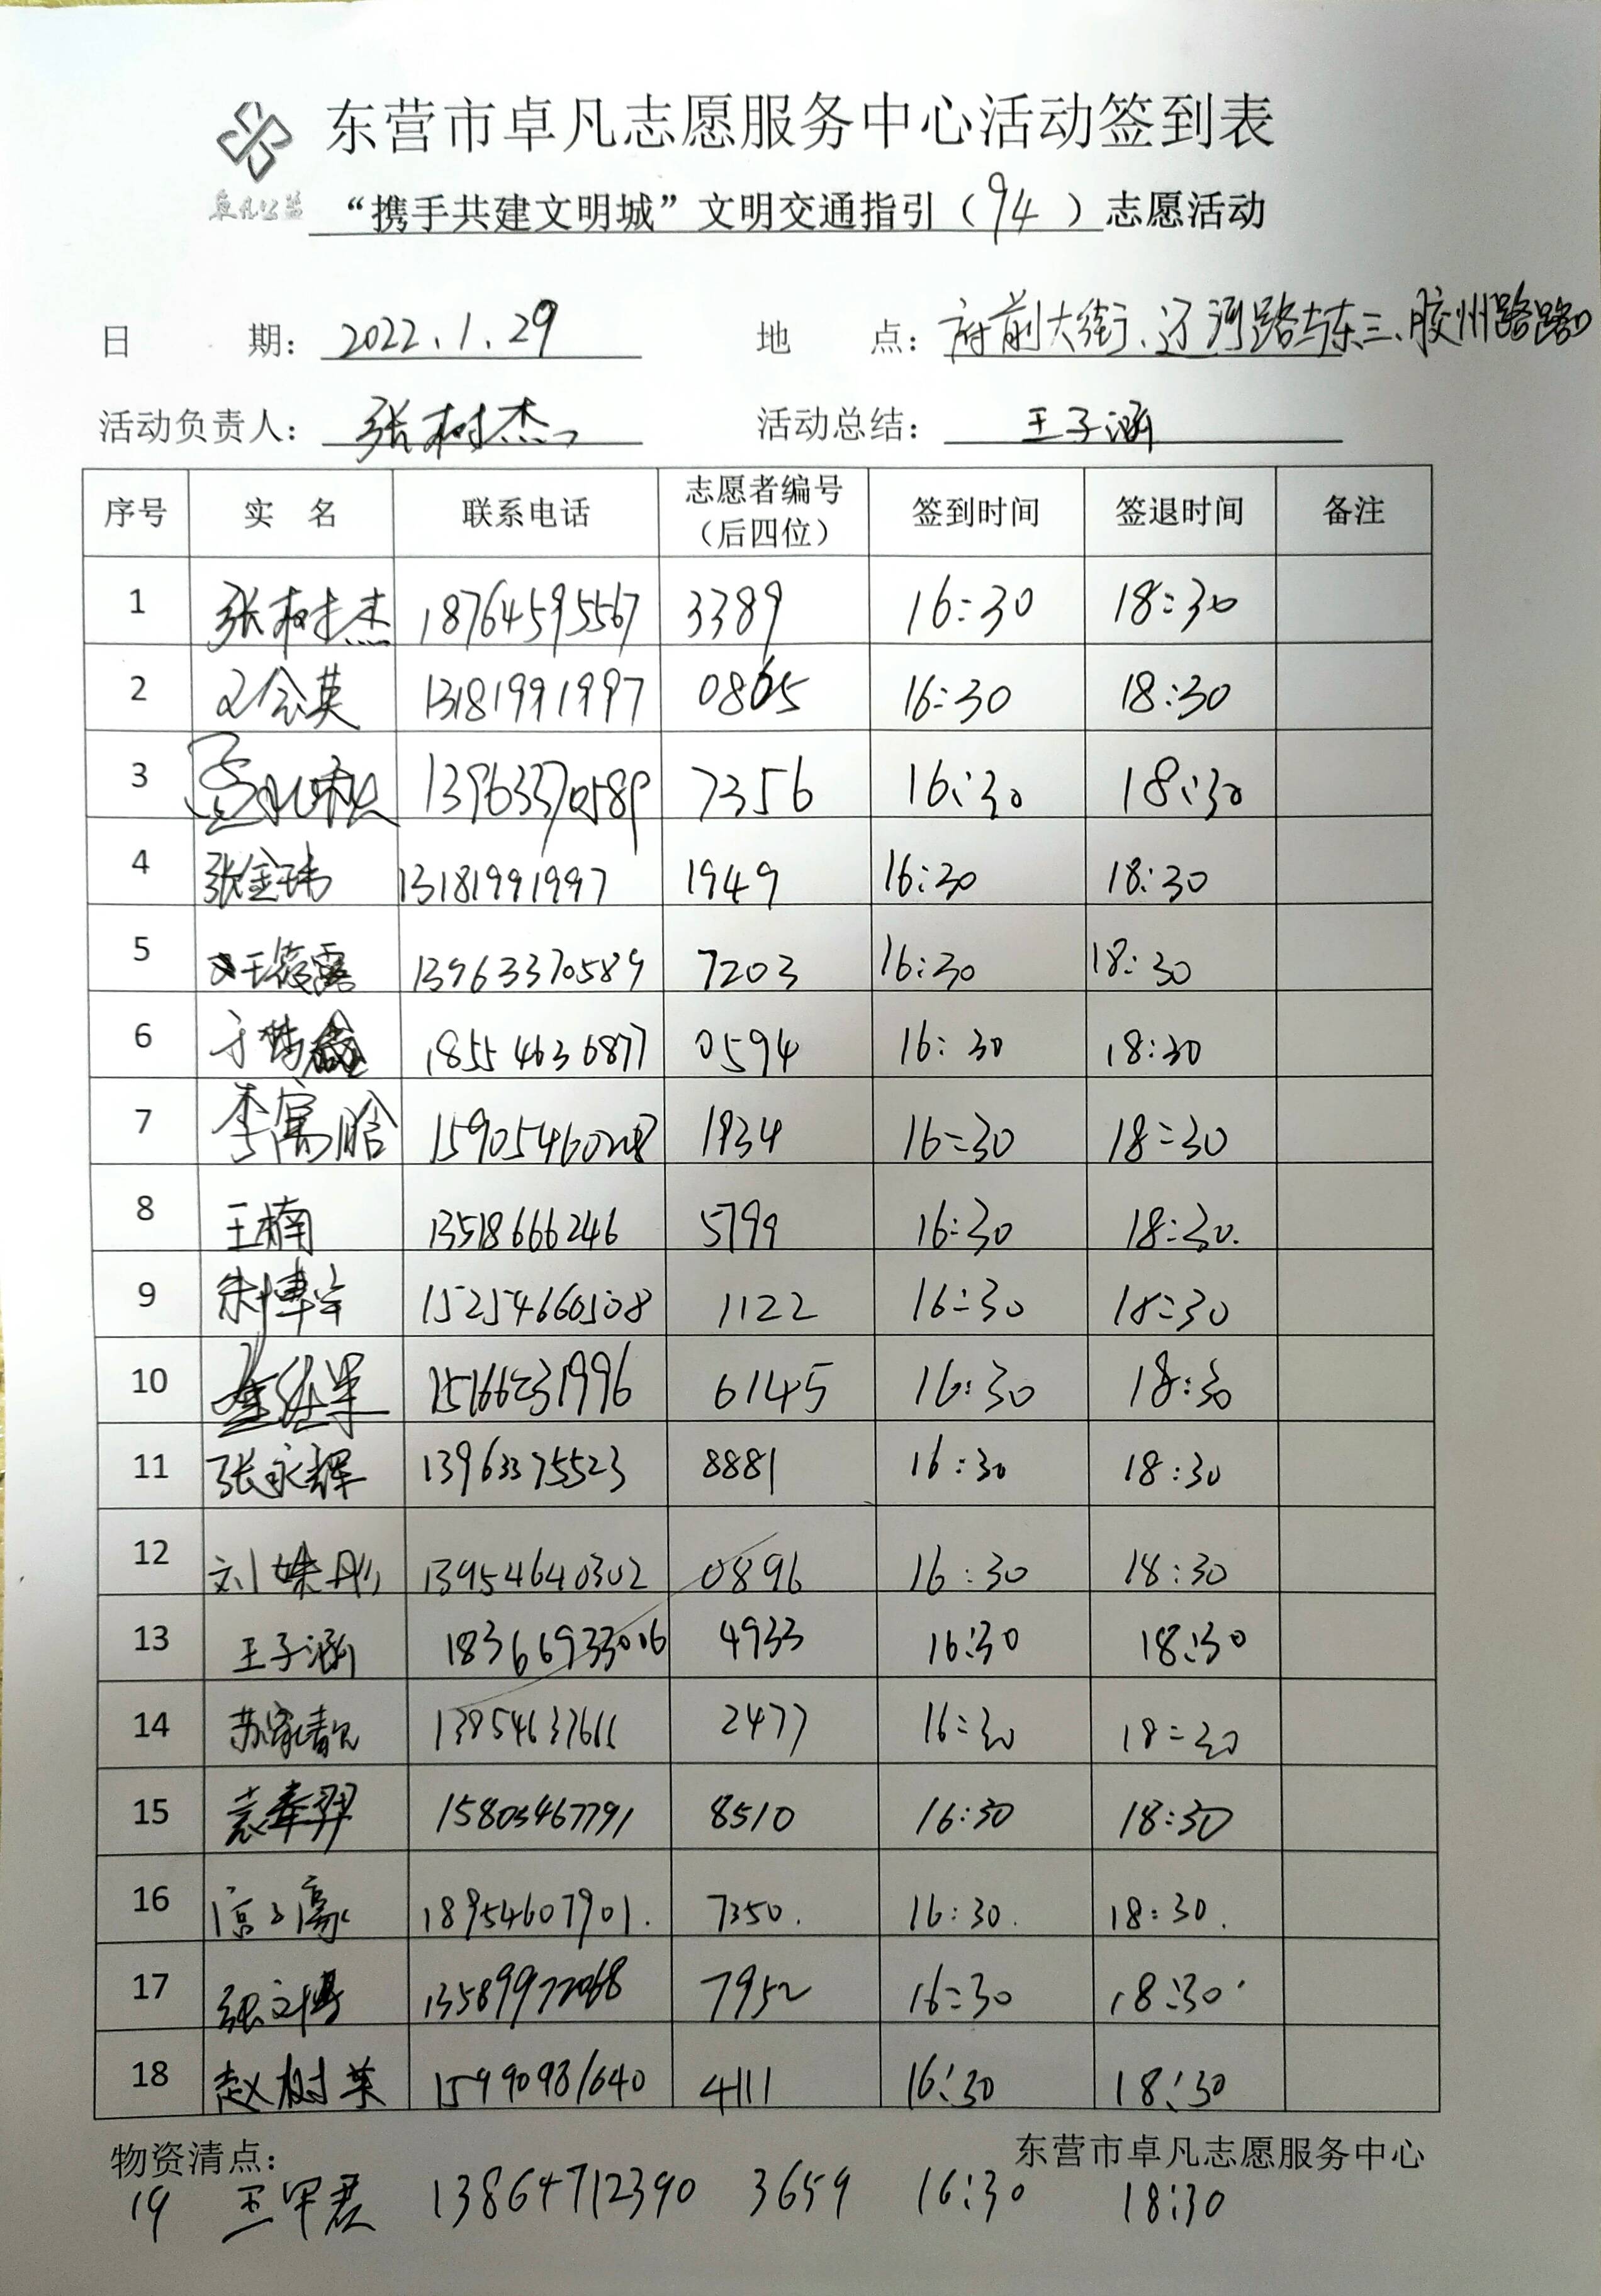 东营市卓凡志愿服务中心活动签到表
卓凡公益
“携手共建文明城”文明交通指引（94）志愿活动
日 期： 2022.1.29 地 点： 府前大街、辽河路与东三、胶州路路口
活动负责人： 张树杰 活动总结： 王子涵
序号 实 名 联系电话 志愿者编号（后四位） 签到时间 签退时间 备注
1 张树杰 18764595567 3389 16:30 18:30
2 13181991997 0865 16:30 18:30
3 13963370589 7356 16:30 18:30
4 张金玮 13181991997 1949 16:30 18:30
5 王筱露 13963370589 7203 16:30 18:30
6 18554636877 0594 16:30 18:30
7 李富晗 15905460028 1934 16:30 18:30
8 王楠 13518666246 5799 16:30 18:30.
9 朱博宇 15254660508 1122 16:30 18:30
10 15166231996 6145 16:30 18:30
11 张永辉 13963375523 8881 16:30 18:30
12 刘姝彤 13954640302 0896 16:30 18:30
13 王子涵 18366933016 4933 16:30 18:30
14 苏家靓 13854637611 2477 16:30 18:30
15 袁奉羿 15805467791 8510 16:30 18:30
16 18954607901. 7350. 16:30. 18:30.
17 张文博 13589972068 7952 16:30 18:30
18 赵树英 15990981640 4111 16:30 18:30
物资清点： 东营市卓凡志愿服务中心
19 王甲君 13864712390 3659 16:30 18:30